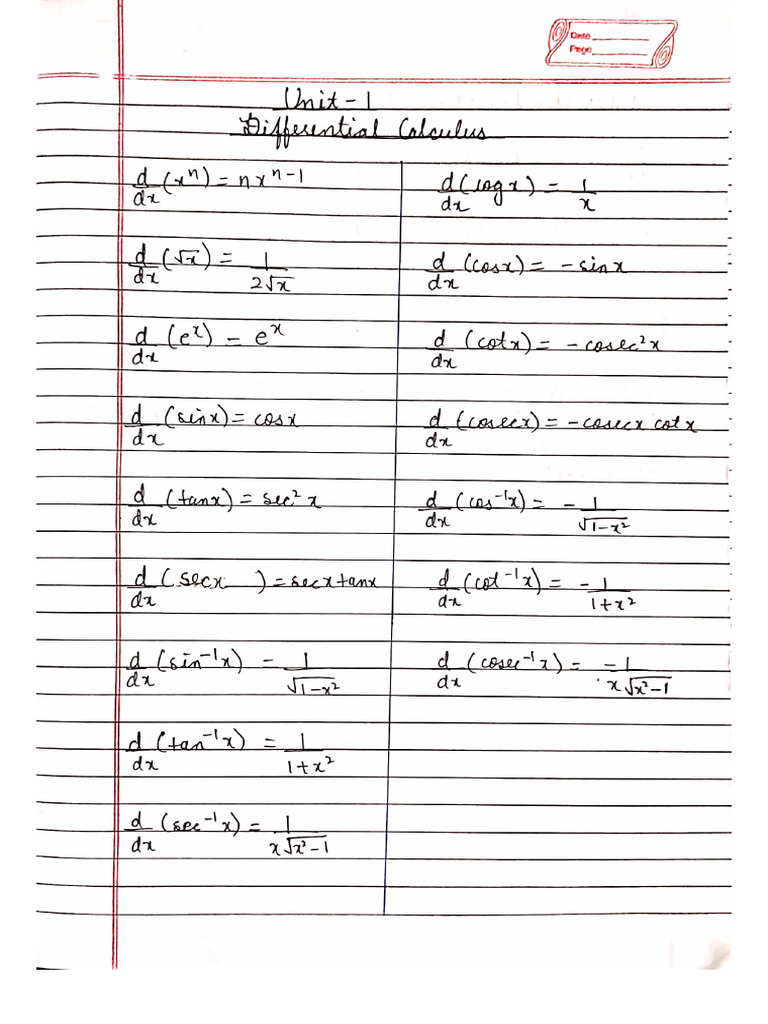 Date
Page
Unit-1
Differential Calculus
d/dx (xⁿ) = nxⁿ⁻¹
d/dx (√x) = 1/2√x
d/dx (eˣ) = eˣ
d/dx (sinx) = cosx
d/dx (tanx) = sec²x
d/dx (secx ) = secxtanx
d/dx (sin⁻¹x) = 1/√(1-x²)
d/dx (tan⁻¹x) = 1/(1+x²)
d/dx (sec⁻¹x) = 1/(x√(x²-1))
d/dx (logx) = 1/x
d/dx (cosx) = -sinx
d/dx (cotx) = -cosec²x
d/dx (cosecx) = -cosecx cotx
d/dx (cos⁻¹x) = -1/√(1-x²)
d/dx (cot⁻¹x) = -1/(1+x²)
d/dx (cosec⁻¹x) = -1/(x√(x²-1))